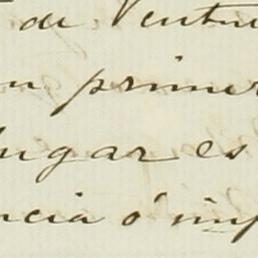 de Ventu
n primer
lugar es
ncia ó imp